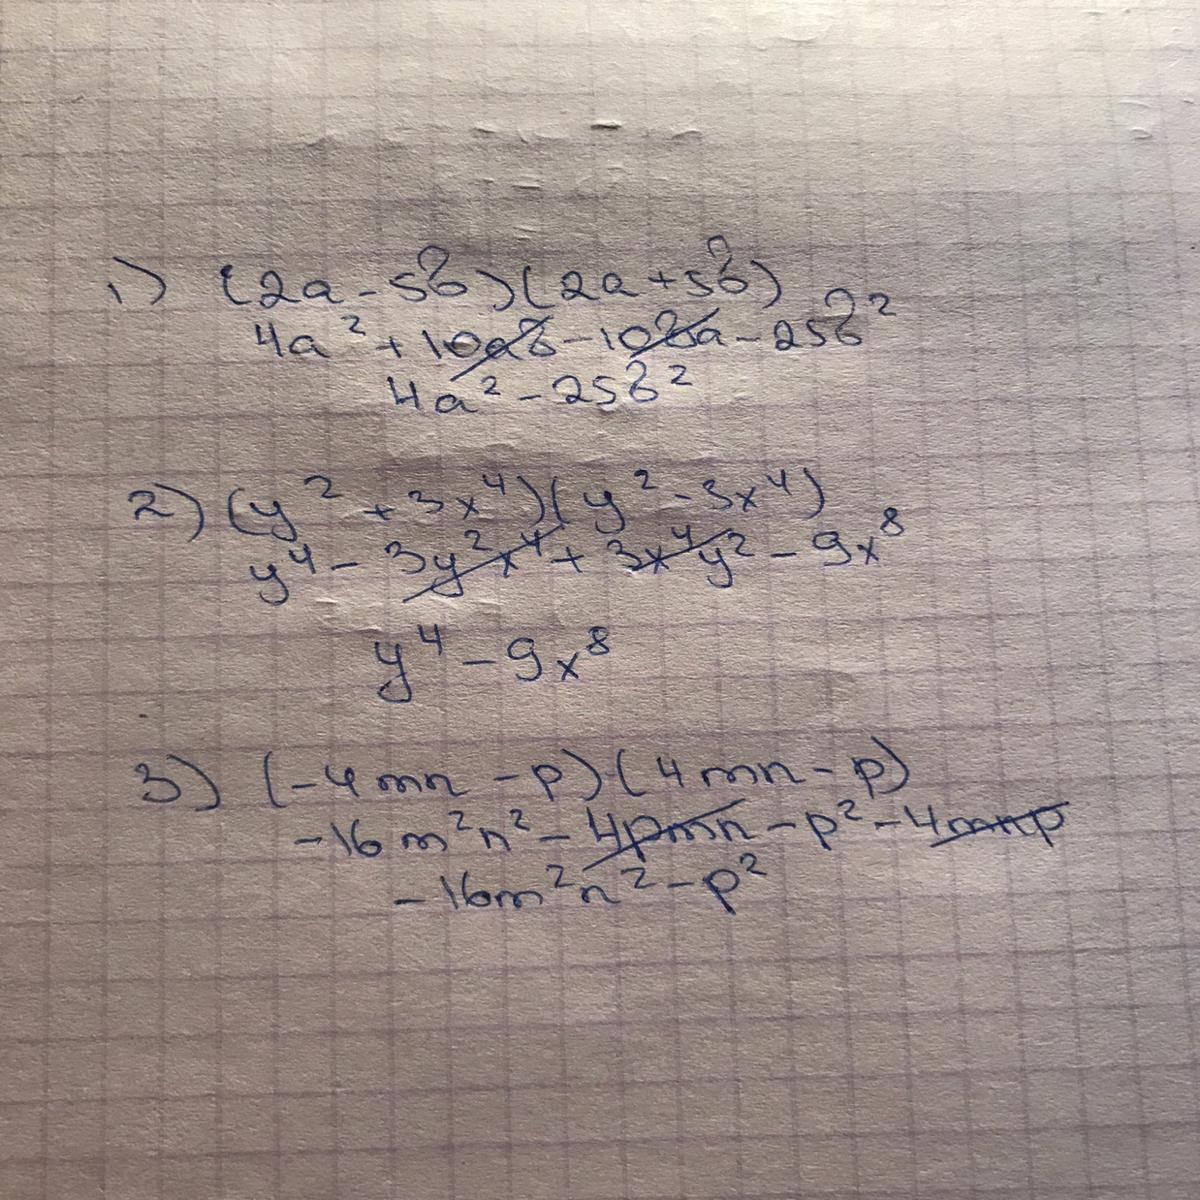 1) (2a - 5b)(2a + 5b)
4a² + 10ab - 10ba - 25b²
4a² - 25b²
2) (y² + 3x⁴)(y² - 3x⁴)
y⁴ - 3y²x⁴ + 3x⁴y² - 9x⁸
y⁴ - 9x⁸
3) (-4mn - p)(4mn - p)
-16m²n² - 4pmn - p² - 4mnp
-16m²n² - p²